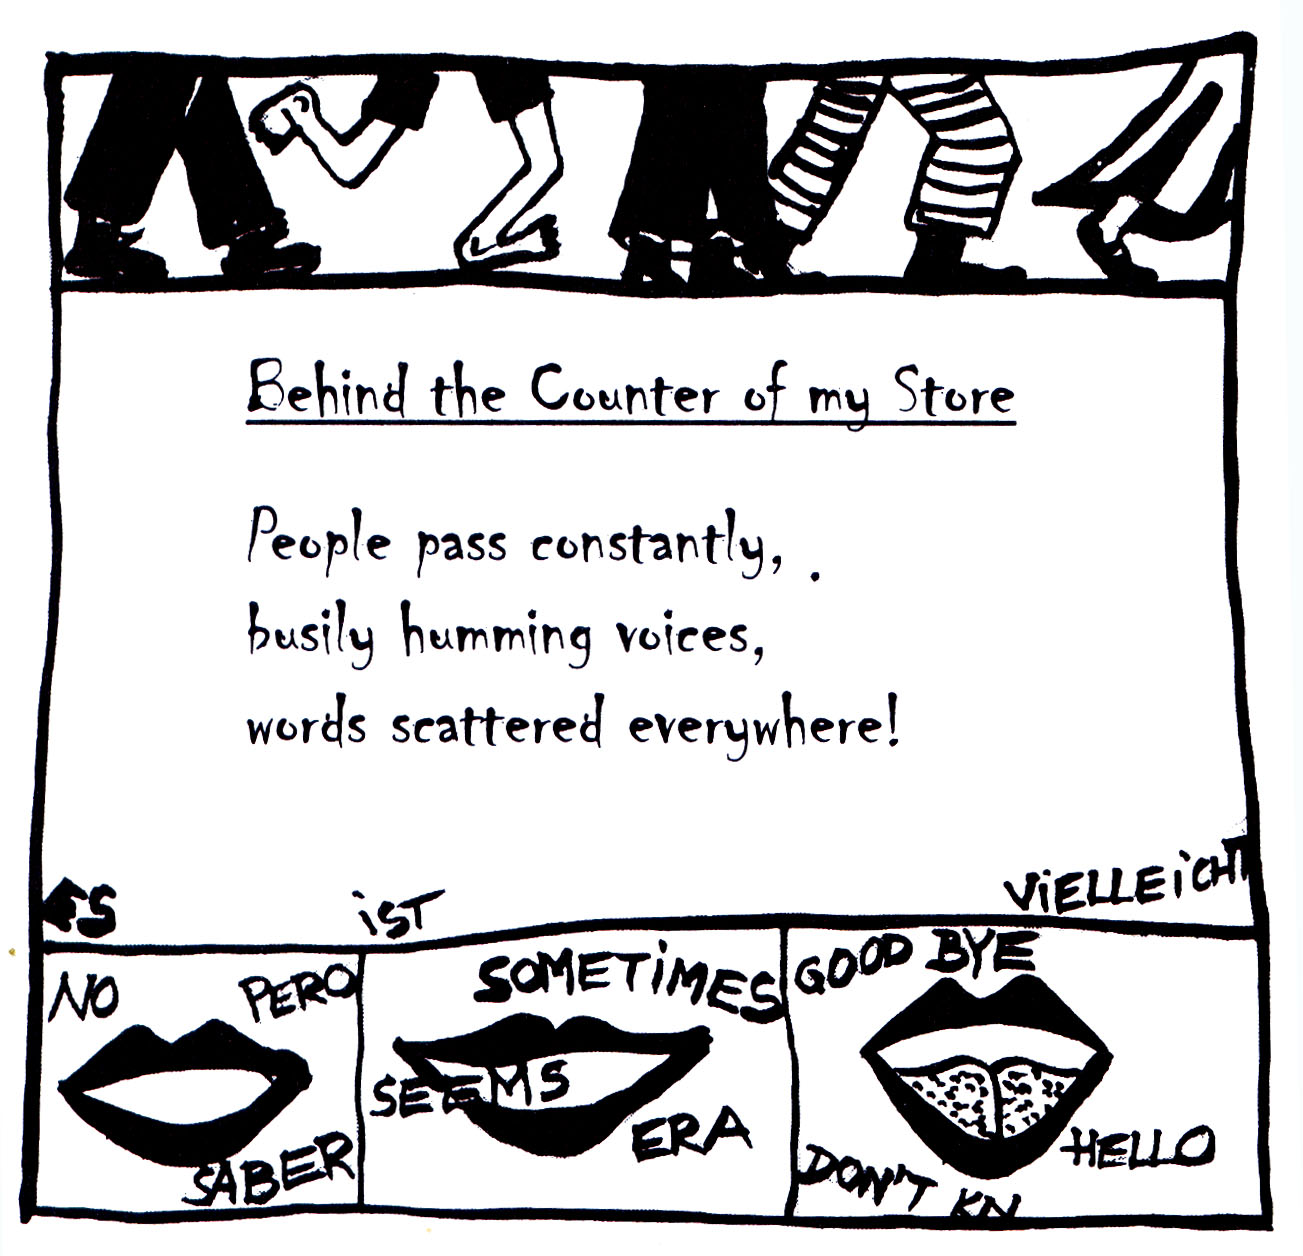 Behind the Counter of my Store
People pass constantly,
busily humming voices,
words scattered everywhere!
ES iST ViELLEiCHT
NO PERO
SABER
SOMETiMES
SEEMS
ERA
GOOD BYE
HELLO
DON'T KN